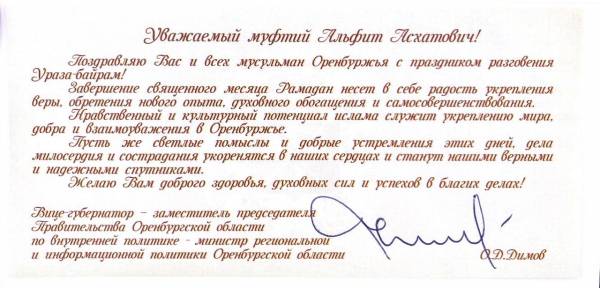 Уважаемый муфтий Альфит Асхатович!
Поздравляю Вас и всех мусульман Оренбуржья с праздником разговения
Ураза-байрам!
Завершение священного месяца Рамадан несет в себе радость укрепления
веры, обретения нового опыта, духовного обогащения и самосовершенствования.
Нравственный и культурный потенциал ислама служит укреплению мира,
добра и взаимоуважения в Оренбуржье.
Пусть же светлые помыслы и добрые устремления этих дней, дела
милосердия и сострадания укоренятся в наших сердцах и станут нашими верными
и надежными спутниками.
Желаю Вам доброго здоровья, духовных сил и успехов в благих делах!
Вице-губернатор – заместитель председателя
Правительства Оренбургской области
по внутренней политике - министр региональной
и информационной политики Оренбургской области О.Д.Димов